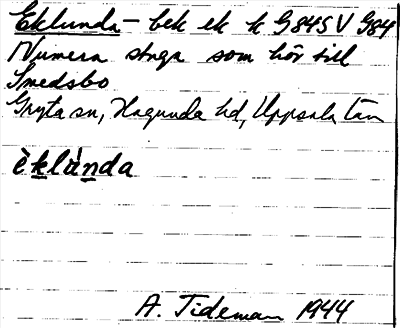 Eklunda – bek ek k G 845 V G84
Numera stuga som hör till
Smedsbo
Gryta sn, Hagunda hd, Uppsala län
èklùnda
A. Tideman 1944